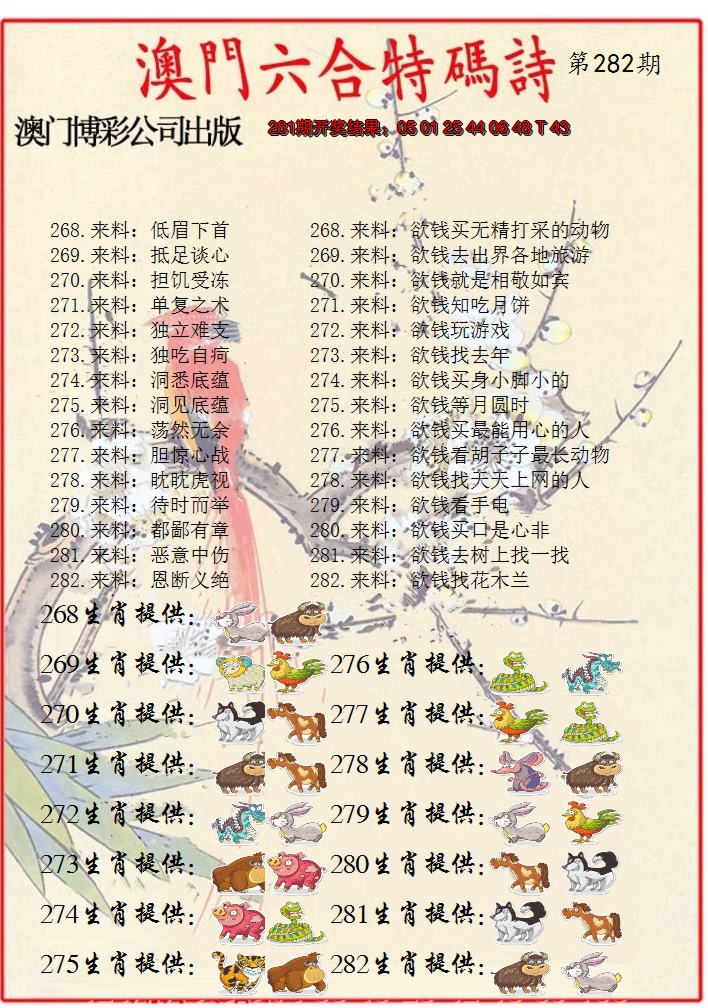 澳門六合特碼詩 第282期
澳门博彩公司出版 281期开奖结果：05 01 25 44 06 48 T 43
268.来料：低眉下首 268.来料：欲钱买无精打采的动物
269.来料：抵足谈心 269.来料：欲钱去出界各地旅游
270.来料：担饥受冻 270.来料：欲钱就是相敬如宾
271.来料：单复之术 271.来料：欲钱知吃月饼
272.来料：独立难支 272.来料：欲钱玩游戏
273.来料：独吃自疴 273.来料：欲钱找去年
274.来料：洞悉底蕴 274.来料：欲钱买身小脚小的
275.来料：洞见底蕴 275.来料：欲钱等月圆时
276.来料：荡然无余 276.来料：欲钱买最能用心的人
277.来料：胆惊心战 277.来料：欲钱看胡子子最长动物
278.来料：眈眈虎视 278.来料：欲钱找天天上网的人
279.来料：待时而举 279.来料：欲钱看手电
280.来料：都鄙有章 280.来料：欲钱买口是心非
281.来料：恶意中伤 281.来料：欲钱去树上找一找
282.来料：恩断义绝 282.来料：欲钱找花木兰
268生肖提供：
269生肖提供： 276生肖提供：
270生肖提供： 277生肖提供：
271生肖提供： 278生肖提供：
272生肖提供： 279生肖提供：
273生肖提供： 280生肖提供：
274生肖提供： 281生肖提供：
275生肖提供： 282生肖提供：